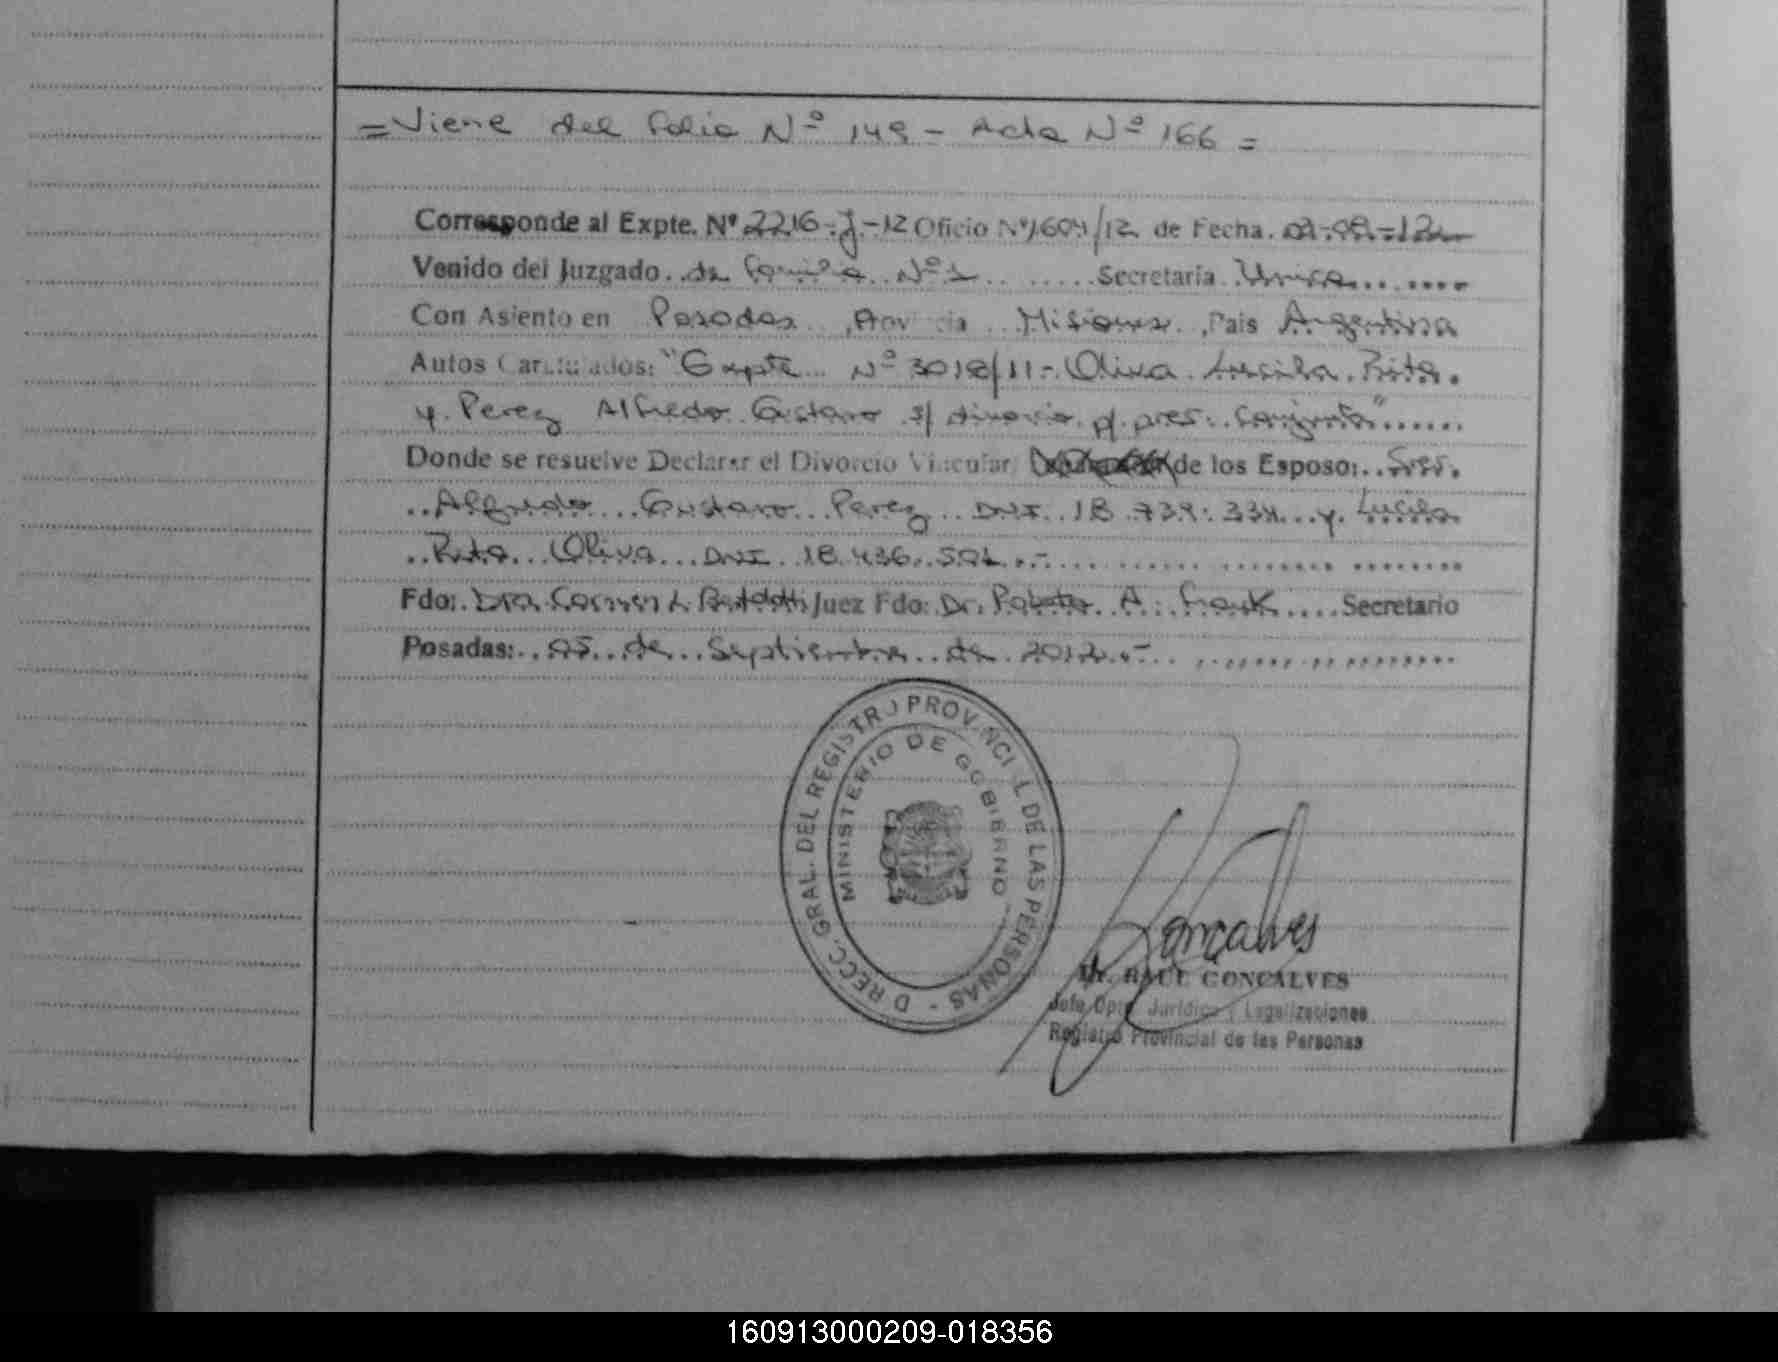 = Viene del folio Nº 149 - Acta Nº 166 =
Corresponde al Expte. Nº 2216-J-12 Oficio Nº 1604/12 de Fecha.
Venido del Juzgado de Familia Nº 1 Secretaria Unica
Con Asiento en Posadas, Provincia Misiones, Pais Argentina
Autos Caratulados: "Expte Nº 3018/11- Oliva Lucila Rita
y Perez Alfredo Gustavo s/ divorcio p/ pres. conjunta"
Donde se resuelve Declarar el Divorcio Vincular de los Esposo: Sres.
Alfredo Gustavo Perez DNI 18.739.334 y Lucila
Rita Oliva DNI 18.436.501.-
Fdo: Dra Carmen L. Juez Fdo: Dr. A. Frank Secretario
Posadas: 05 de Septiembre de 2012.-
DIRECC. GRAL. DEL REGISTRO PROVINCIAL DE LAS PERSONAS -
MINISTERIO DE GOBIERNO
Goncalves
Dr. RAUL GONCALVES
Jefe Dpto. Jurídico y Legalizaciones
Registro Provincial de las Personas
160913000209-018356